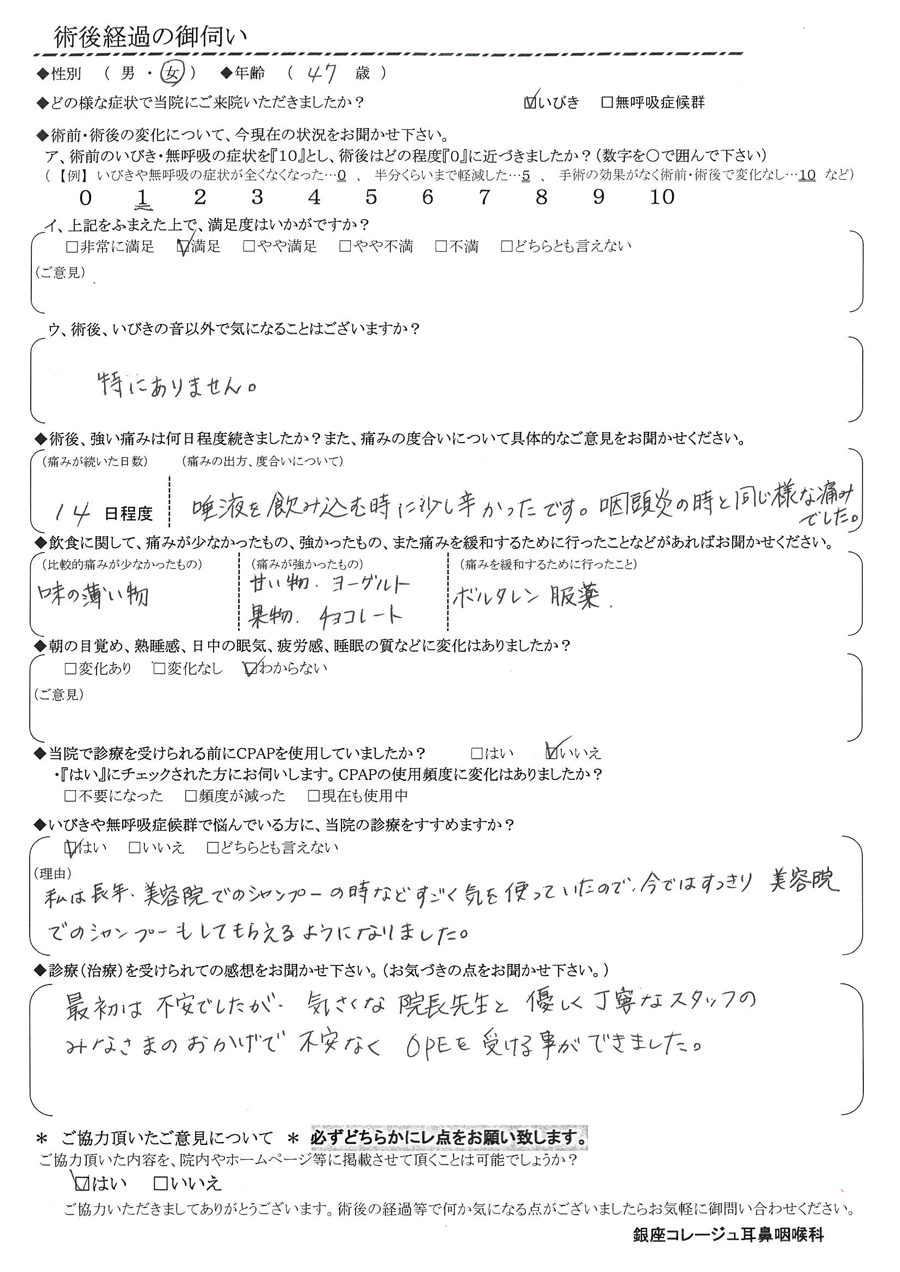 術後経過の御伺い
◆性別 ( 男 ・ 女 ) ◆年齢 ( 47 歳 )
◆どの様な症状で当院にご来院いただきましたか? ☑いびき □無呼吸症候群
◆術前・術後の変化について、今現在の状況をお聞かせ下さい。
ア、術前のいびき・無呼吸の症状を『10』とし、術後はどの程度『0』に近づきましたか?(数字を〇で囲んで下さい)
(【例】いびきや無呼吸の症状が全くなくなった…0 、 半分くらいまで軽減した…5 、 手術の効果がなく術前・術後で変化なし…10 など)
0 1 2 3 4 5 6 7 8 9 10
イ、上記をふまえた上で、満足度はいかがですか?
□非常に満足 ☑満足 □やや満足 □やや不満 □不満 □どちらとも言えない
(ご意見)
ウ、術後、いびきの音以外で気になることはございますか?
特にありません。
◆術後、強い痛みは何日程度続きましたか?また、痛みの度合いについて具体的なご意見をお聞かせください。
(痛みが続いた日数) (痛みの出方、度合いについて)
14 日程度 唾液を飲み込む時に少し辛かったです。咽頭炎の時と同じ様な痛み
でした。
◆飲食に関して、痛みが少なかったもの、強かったもの、また痛みを緩和するために行ったことなどがあればお聞かせください。
(比較的痛みが少なかったもの) (痛みが強かったもの) (痛みを緩和するために行ったこと)
味の薄い物 甘い物. ヨーグルト ボルタレン 服薬.
果物. チョコレート
◆朝の目覚め、熟睡感、日中の眠気、疲労感、睡眠の質などに変化はありましたか?
□変化あり □変化なし ☑わからない
(ご意見)
◆当院で診療を受けられる前にCPAPを使用していましたか? □はい ☑いいえ
・『はい』にチェックされた方にお伺いします。CPAPの使用頻度に変化はありましたか?
□不要になった □頻度が減った □現在も使用中
◆いびきや無呼吸症候群で悩んでいる方に、当院の診療をすすめますか?
☑はい □いいえ □どちらとも言えない
(理由)
私は長年、美容院でのシャンプーの時などすごく気を使っていたので、今ではすっきり 美容院
でのシャンプーもしてもらえるようになりました。
◆診療(治療)を受けられての感想をお聞かせ下さい。(お気づきの点をお聞かせ下さい。)
最初は不安でしたが、気さくな院長先生と優しく丁寧なスタッフの
みなさまのおかげで不安なく OPEを受ける事ができました。
* ご協力頂いたご意見について * 必ずどちらかにレ点をお願い致します。
ご協力頂いた内容を、院内やホームページ等に掲載させて頂くことは可能でしょうか?
☑はい □いいえ
ご協力いただきましてありがとうございます。術後の経過等で何か気になる点がございましたらお気軽に御問い合わせください。
銀座コレージュ耳鼻咽喉科